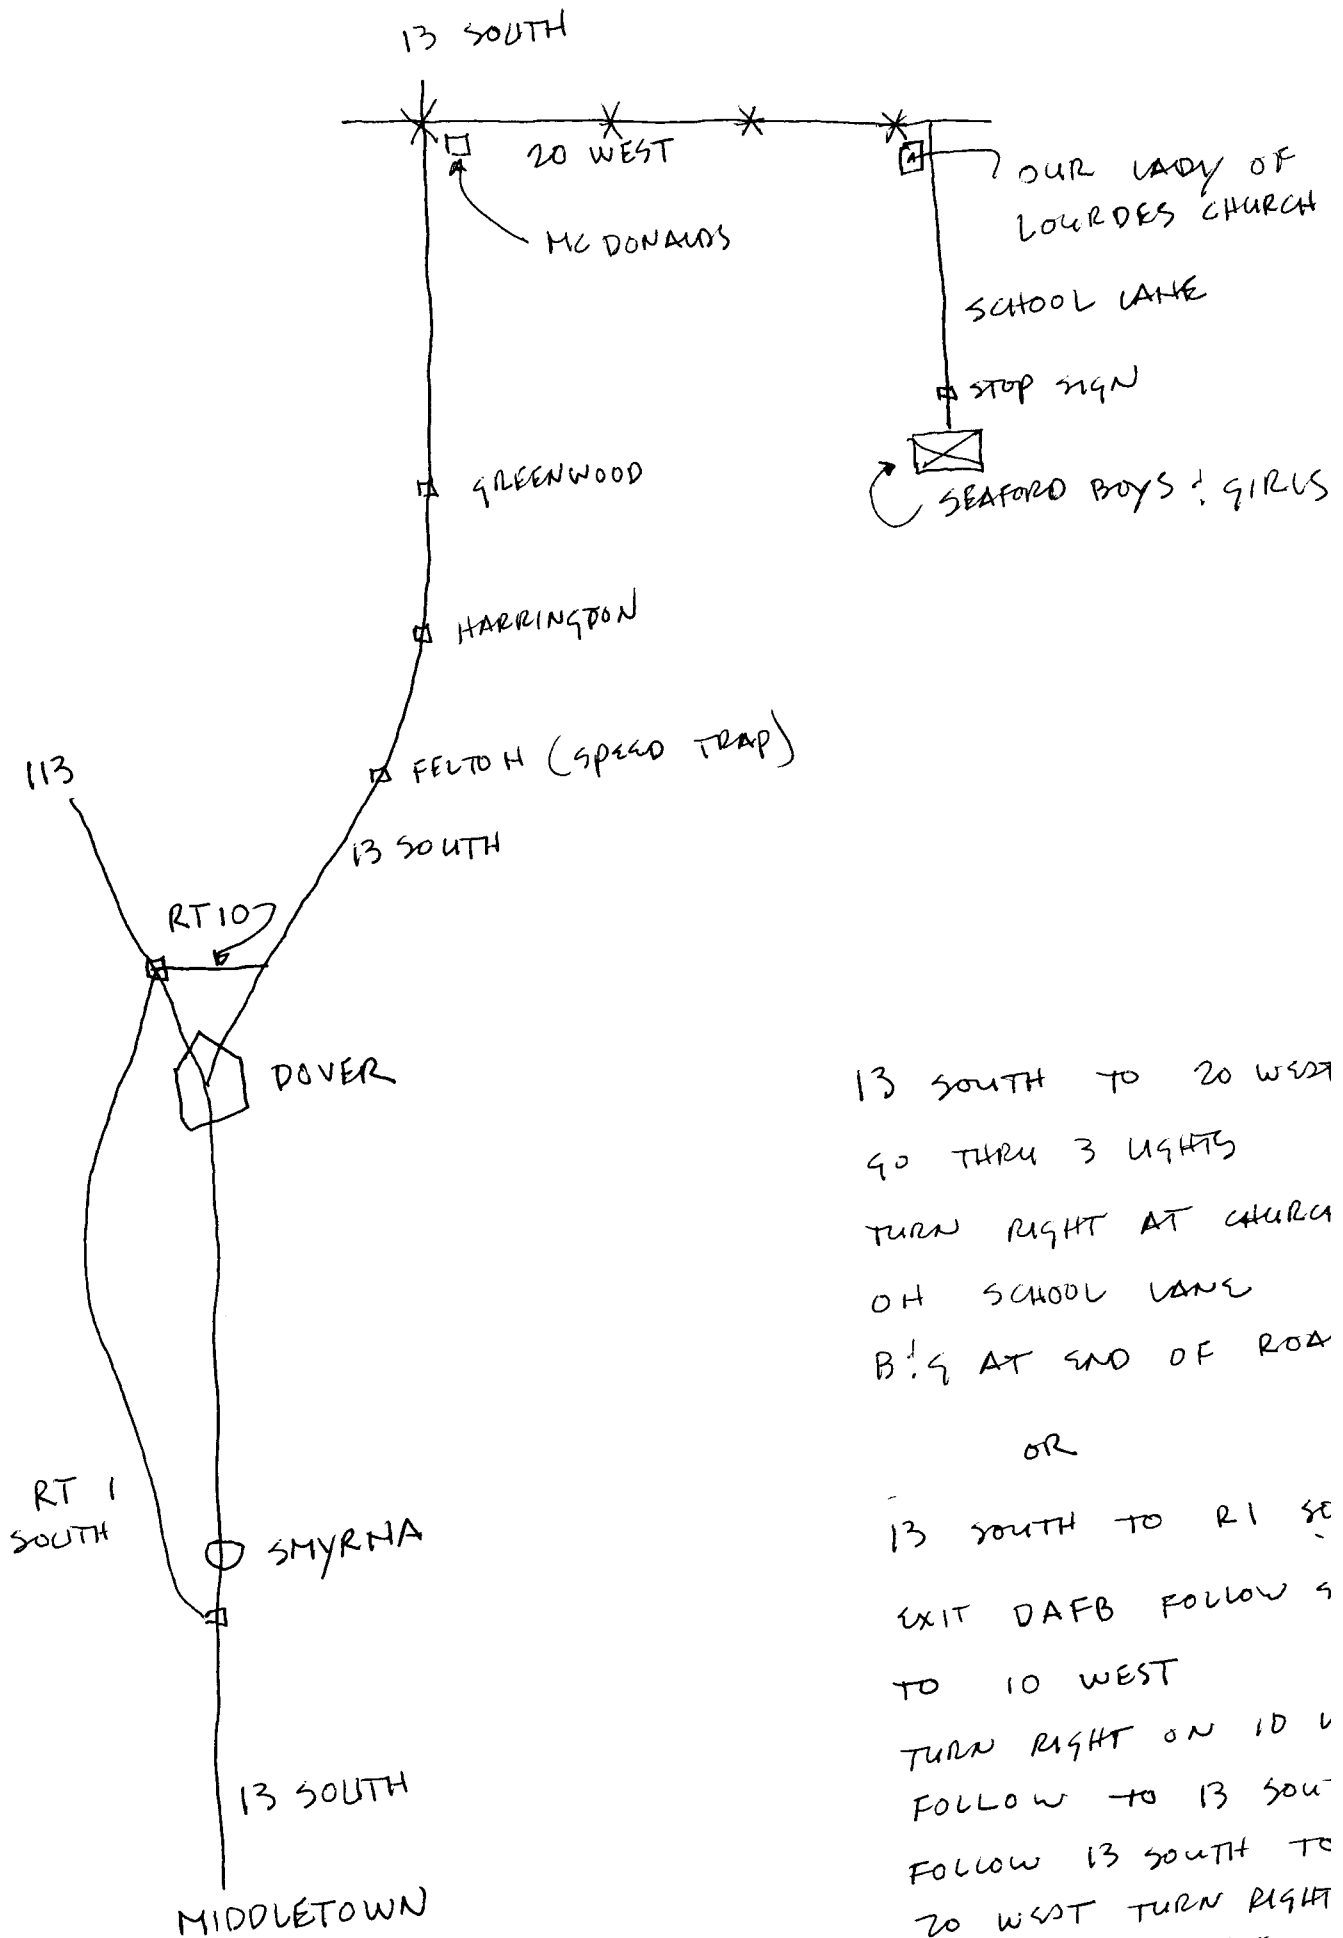 13 SOUTH
20 WEST
MCDONALDS
OUR LADY OF
LOURDES CHURCH
SCHOOL LANE
STOP SIGN
SEAFORD BOYS & GIRLS
GREENWOOD
HARRINGTON
FELTON (SPEED TRAP)
13 SOUTH
113
RT 10
DOVER
RT 1
SOUTH
SMYRNA
13 SOUTH
MIDDLETOWN
13 SOUTH TO 20 WEST
GO THRU 3 LIGHTS
TURN RIGHT AT CHURCH
ON SCHOOL LANE
B & G AT END OF
OR
13 SOUTH TO R1
EXIT DAFB FOLLOW
TO 10 WEST
TURN RIGHT ON 10
FOLLOW TO 13
FOLLOW 13 SOUTH TO
20 WEST TURN RIGHT